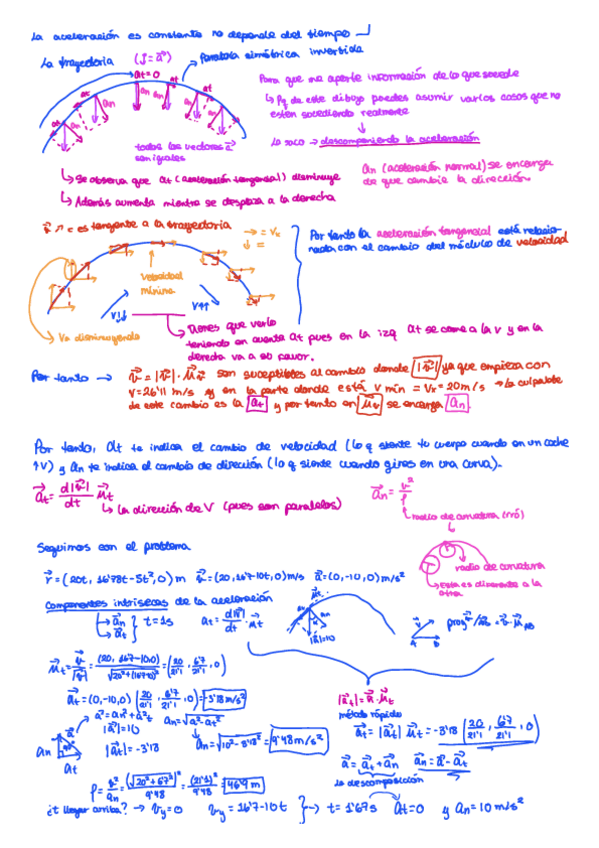 La aceleración es constante no depende del tiempo
La trayectoria (j = a⃗)
at=0
Parábola simétrica invertida
at
an
Para que me aporte información de lo que sucede
↳ Pq de este dibujo puedes asumir varios casos que no
estén sucediendo realmente
todos los vectores a⃗
son iguales
Lo saco → descomponiendo la aceleración
↳ Se observa que at (aceleración tangencial) disminuye
an (aceleración normal) se encarga
de que cambie la dirección.
↳ Además aumenta mientra se desplaza a la derecha
es tangente a la trayectoria
→ = Vx
↓ =
Por tanto la aceleración tangencial está relacio-
nada con el cambio del módulo de velocidad
Velocidad
mínima
V↓↓
V↑↑
Va disminuyendo
↳ Tienes que verlo
teniendo en cuenta at pues en la izq at se come a la v y en la
derecha va a su favor.
Por tanto → v⃗ = |v⃗| · μ⃗v son susceptibles al cambio donde |v⃗| ya que empieza con
v=26'11 m/s y en la parte donde está v mín = Vx = 20 m/s → la culpable
de este cambio es la at y por tanto en μ⃗v se encarga an.
Por tanto, at te indica el cambio de velocidad (lo q siente tu cuerpo cuando en un coche
↑V) y an te indica el cambio de dirección (lo q siente cuando gires en una curva).
a⃗t = d|v⃗|/dt μ⃗t
↳ la dirección de V (pues son paralelos)
a⃗n = v²/ρ
↳ radio de curvatura (rró)
radio de curvatura
↳ Esta es diferente a la
otra
Seguimos con el problema
r⃗ = (20t, 16'78t - 5t², 0) m v⃗ = (20, 16'7-10t, 0) m/s a⃗ = (0, -10, 0) m/s²
Componentes intrísecas de la aceleración
↳ a⃗n
↳ a⃗t } t = 1s
at = d|v⃗|/dt · μ⃗t
|a⃗|=10
μ⃗t = v⃗/|v⃗| = (20, 16'7-10, 0)/√(20²+(16'7-10)²) = (20/21'1, 6'7/21'1, 0)
a⃗t = (0, -10, 0) (20/21'1, 6'7/21'1, 0) = -3'18 m/s²
|a⃗t| = a⃗ · μ⃗t
método rápido
a² = an² + a²t
|a⃗| = 10
|a⃗t| = -3'18
an = √(a² - at²)
an = √(10² - 3'18²) = 9'48 m/s²
a⃗t = |a⃗t| μ⃗t = -3'18 (20/21'1, 6'7/21'1, 0)
an
at
a⃗ = a⃗t + a⃗n a⃗n = a⃗ - a⃗t
la descomposición
ρ = v²/an = (√(20²+6'7²))²/9'48 = (21'1)²/9'48 = 46'9 m
¿t llegar arriba? → vy = 0 vy = 16'7-10t } → t = 1'67s at=0 y an = 10 m/s²